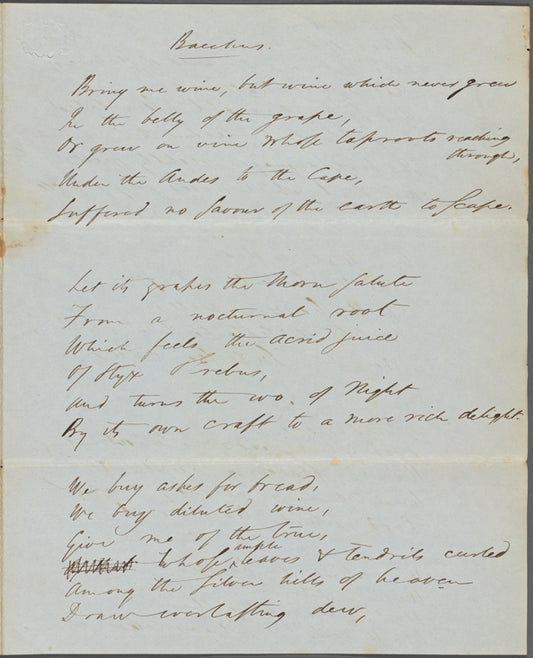 Bacchus.
Bring me wine, but wine which never grew
In the belly of the grape,
Or grew on vine whose taproots reaching
through,
Under the Andes to the Cape,
Suffered no savour of the earth to scape.
Let its grapes the Morn salute
From a nocturnal root
Which feels the acrid juice
Of Styx & Erebus,
And turns the wo of Night
By its own craft to a more rich delight.
We buy ashes for bread,
We buy diluted wine,
Give me of the true,
whose ample leaves & tendrils curled
Among the silver hills of heaven
Draw everlasting dew,